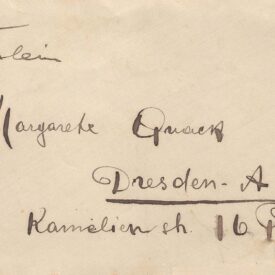 Margarete Quack
Dresden-A
Kamelienstr. 16